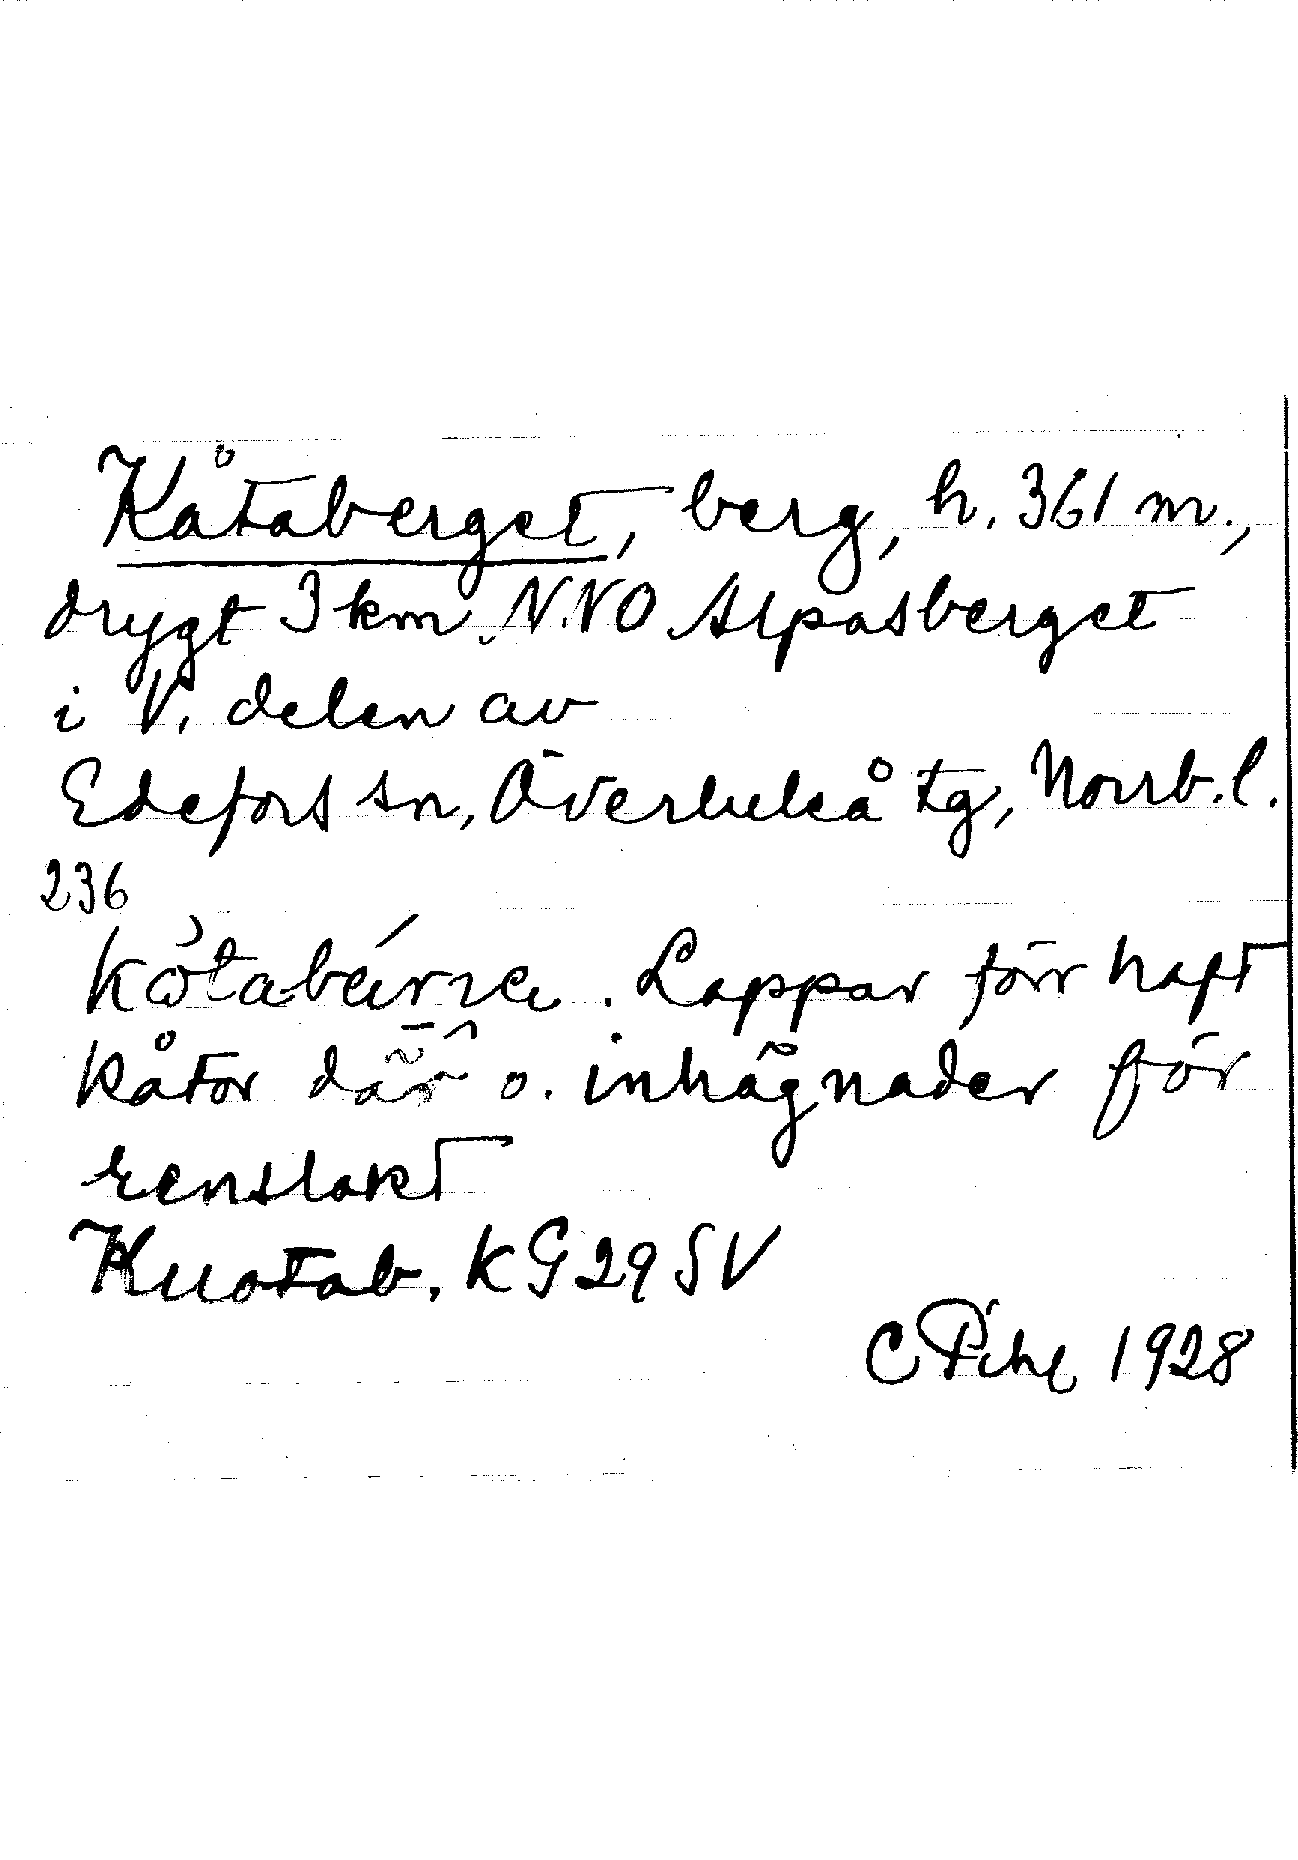 Kåtaberget, berg, h. 361 m.,
drygt 3 km NNO Alpasberget
i V. delen av
Edefors sn, Överluleå tg, Norrb. l.
236
Lappar förr haft
kåtor där o. inhägnader för
renslakt
Kuotab. KG 29 SV
C Pihl 1928